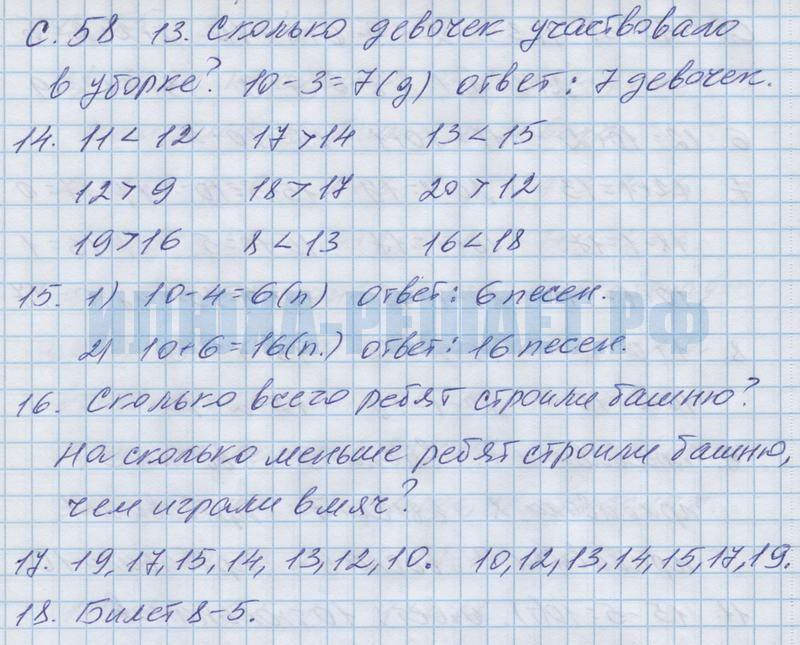 С. 58 13. Сколько девочек участвовало
в уборке? 10-3=7(д) ответ: 7 девочек.
14. 11 < 12 17 > 14 13 < 15
12 > 9 18 > 17 20 > 12
19 > 16 8 < 13 16 < 18
15. 1) 10-4=6(п) ответ: 6 песен.
2) 10+6=16(п.) ответ: 16 песен.
16. Сколько всего ребят строили башню?
На сколько меньше ребят строили башню,
чем играли в мяч?
17. 19, 17, 15, 14, 13, 12, 10. 10, 12, 13, 14, 15, 17, 19.
18. Билет 8-5.